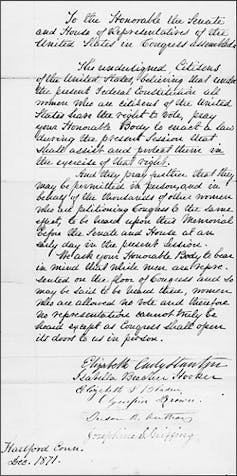 To the Honorable the Senate
and House of Representatives of the
United States in Congress assembled:
The undersigned Citizens
of the United States, believing that under
the present Federal Constitution all
women who are citizens of the United
States have the right to vote, pray
your Honorable Body to enact a law
during the present Session that
shall assist and protect them in
the exercise of that right.
And they pray further that they
may be permitted in person, and in
behalf of the thousands of other women
who are petitioning Congress to the same
effect, to be heard upon this Memorial
before the Senate and House at an
early day in the present Session.
We ask your Honorable Body to bear
in mind that while men are repre-
sented on the floor of Congress and so
may be said to be heard there, women
who are allowed no vote and therefore
no representation cannot truly be
heard except as Congress shall open
its doors to us in person.
Elizabeth Cady Stanton
Isabella Beecher Hooker
Elizabeth L. Bladen
Olympia Brown.
Susan B. Anthony
Josephine S. Griffing
Hartford Conn.
Dec. 1871.